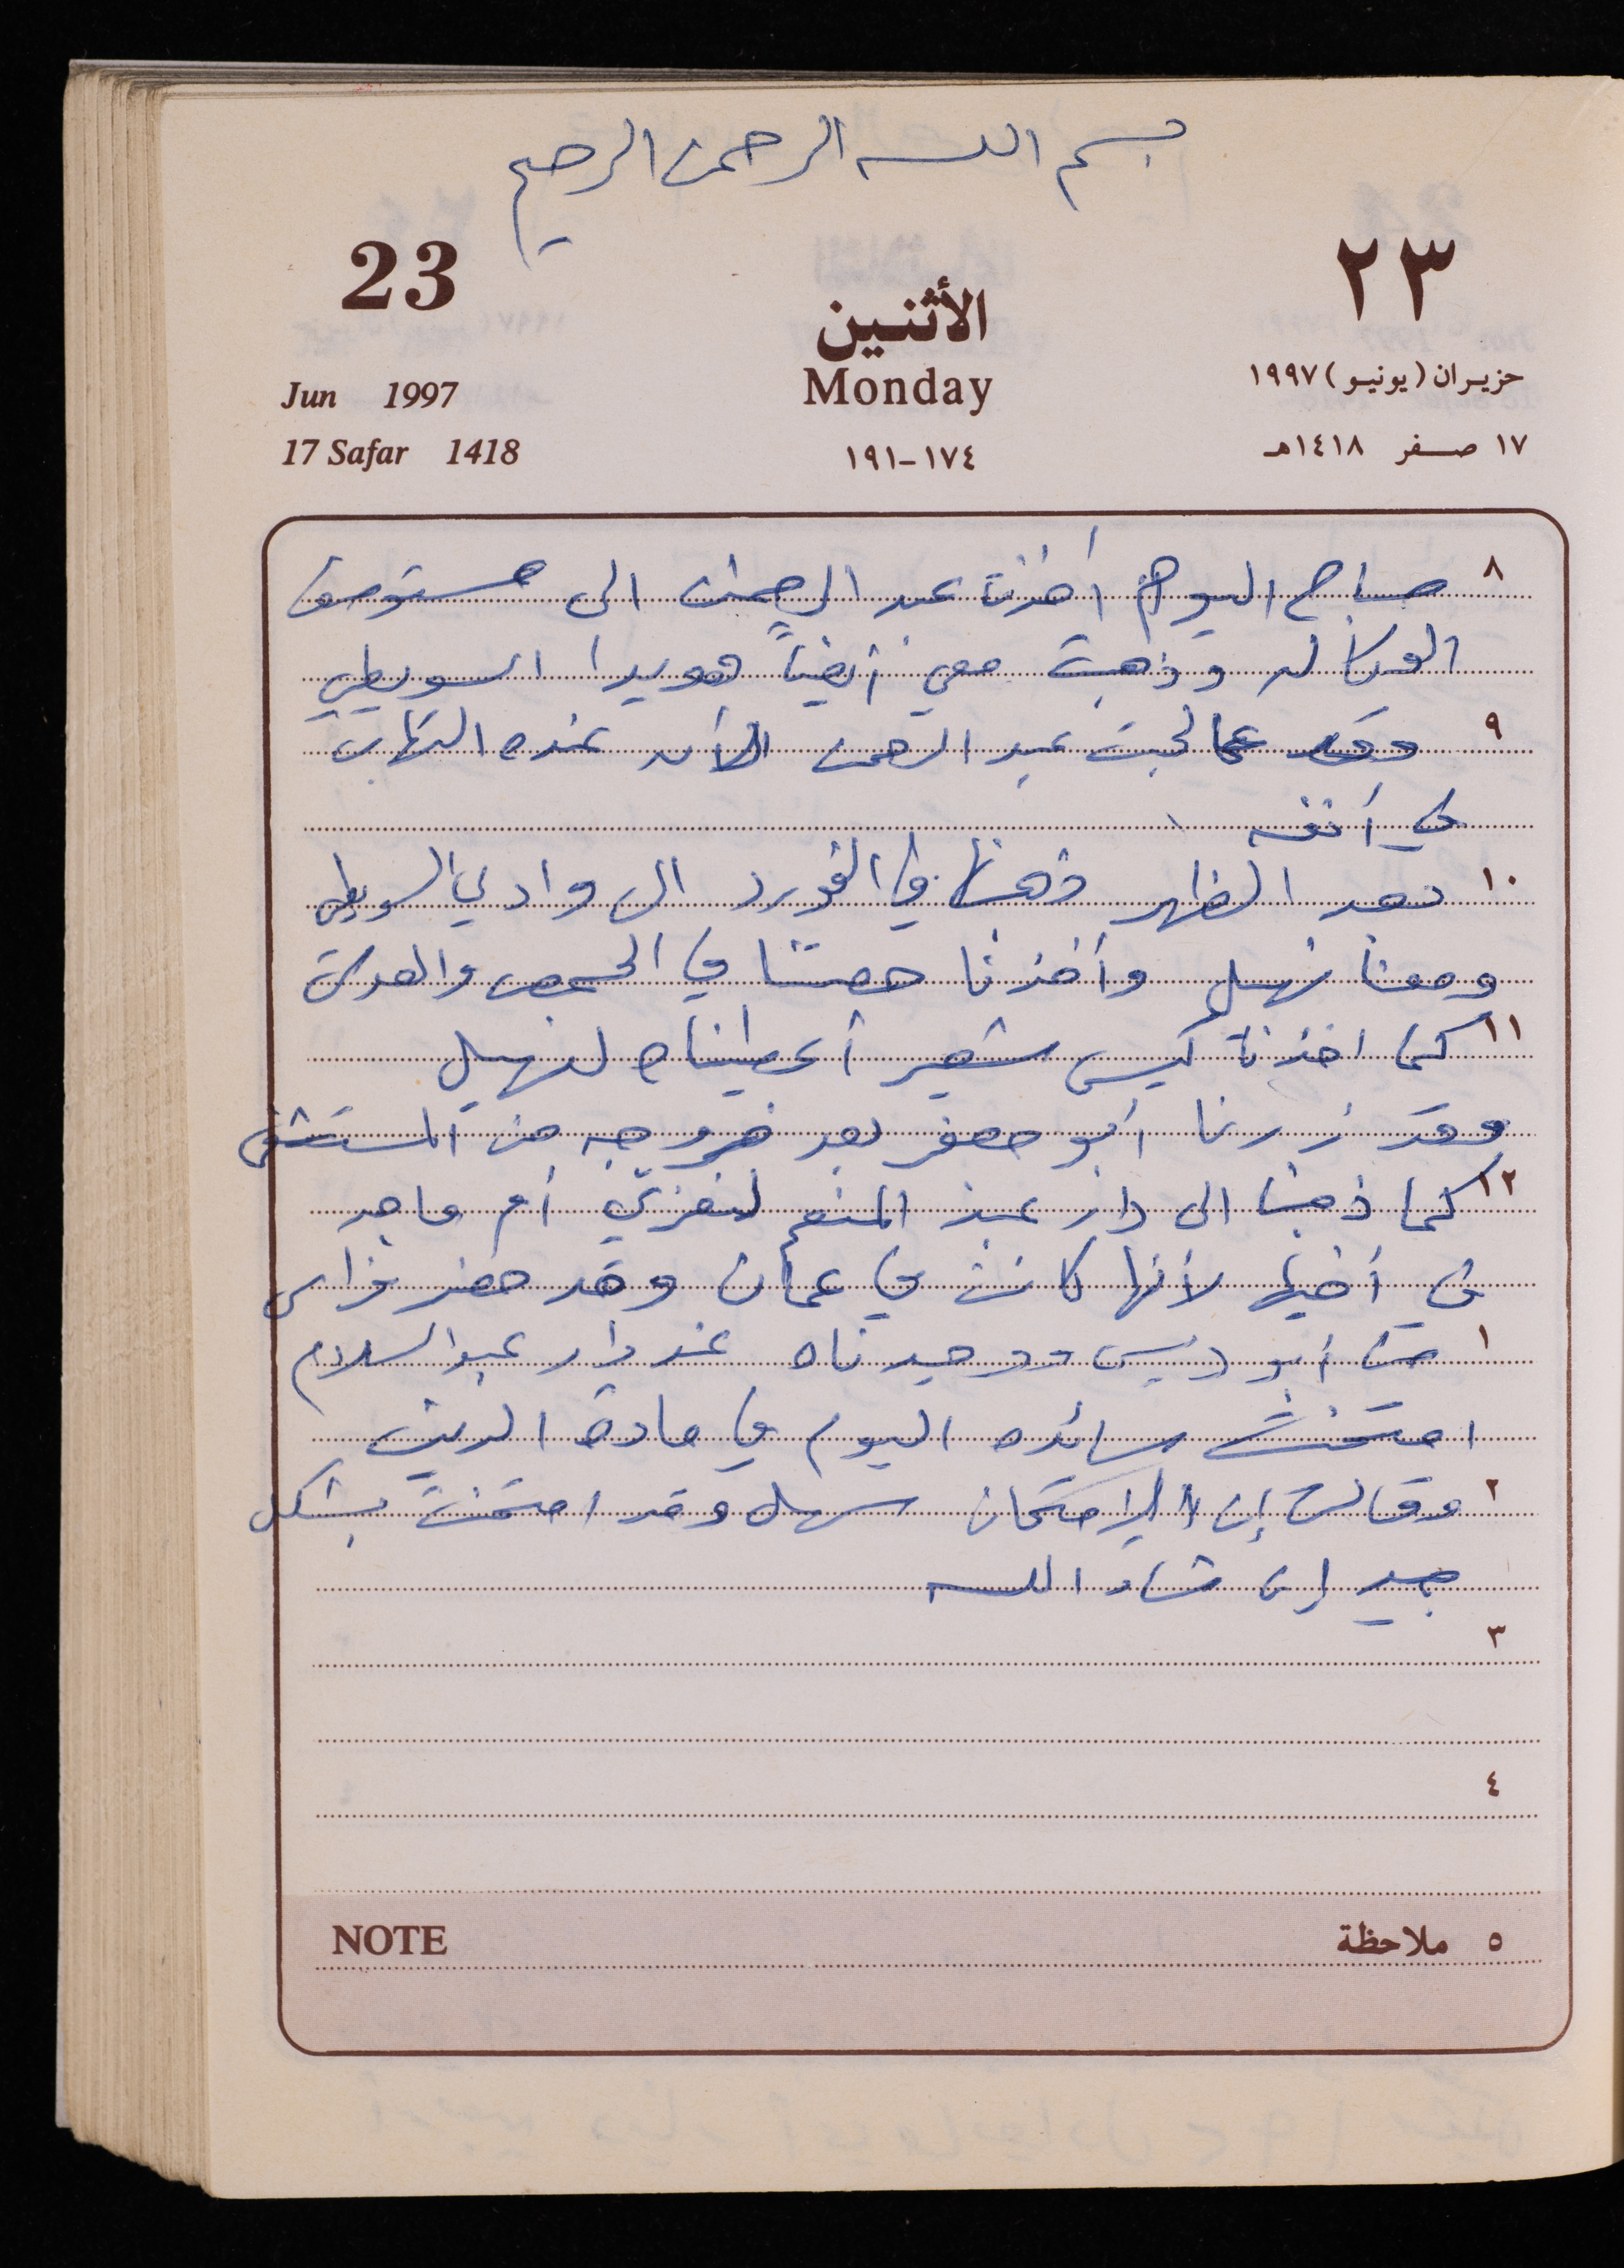 بسم الله الرحمن الرحيم
23
٢٣
الأثنين
Monday
Jun 1997
حزيران (يونيو) ١٩٩٧
17 Safar 1418
١٧٤-١٩١
١٧ صفر ١٤١٨هـ
٨ صباح اليوم أخذت عبد الرحمن الى مستوصف
الوكاله وذهبت معي أيضاً هويدا السويطي
٩ وقد عالجت عبد الرحمن لأن عنده التهاب
في أنفه
١٠ بعد الظهر ذهبنا في الفورد الى وادي السويطي
ومعنا نهيل وأخذنا حصتنا في الحمص والعدس
١١ كما اخذنا كيس شعير أعطيناه لنهيل
وقد زرنا أبو جعفر بعد خروجه من المستشفى
١٢ كما ذهبنا الى دار عبد المنعم لنعزي أم ماجد
في أخيها لأنها كانت في عمان وقد حضر فراس
١ من أبو ديس ووجدناه عند دار عبد السلام
امتحنت سائده اليوم في مادة الدين
٢ وقالت إن الامتحان سهل وقد امتحنت بشكل
جيد إن شاء الله
٣
٤
NOTE
٥ ملاحظة